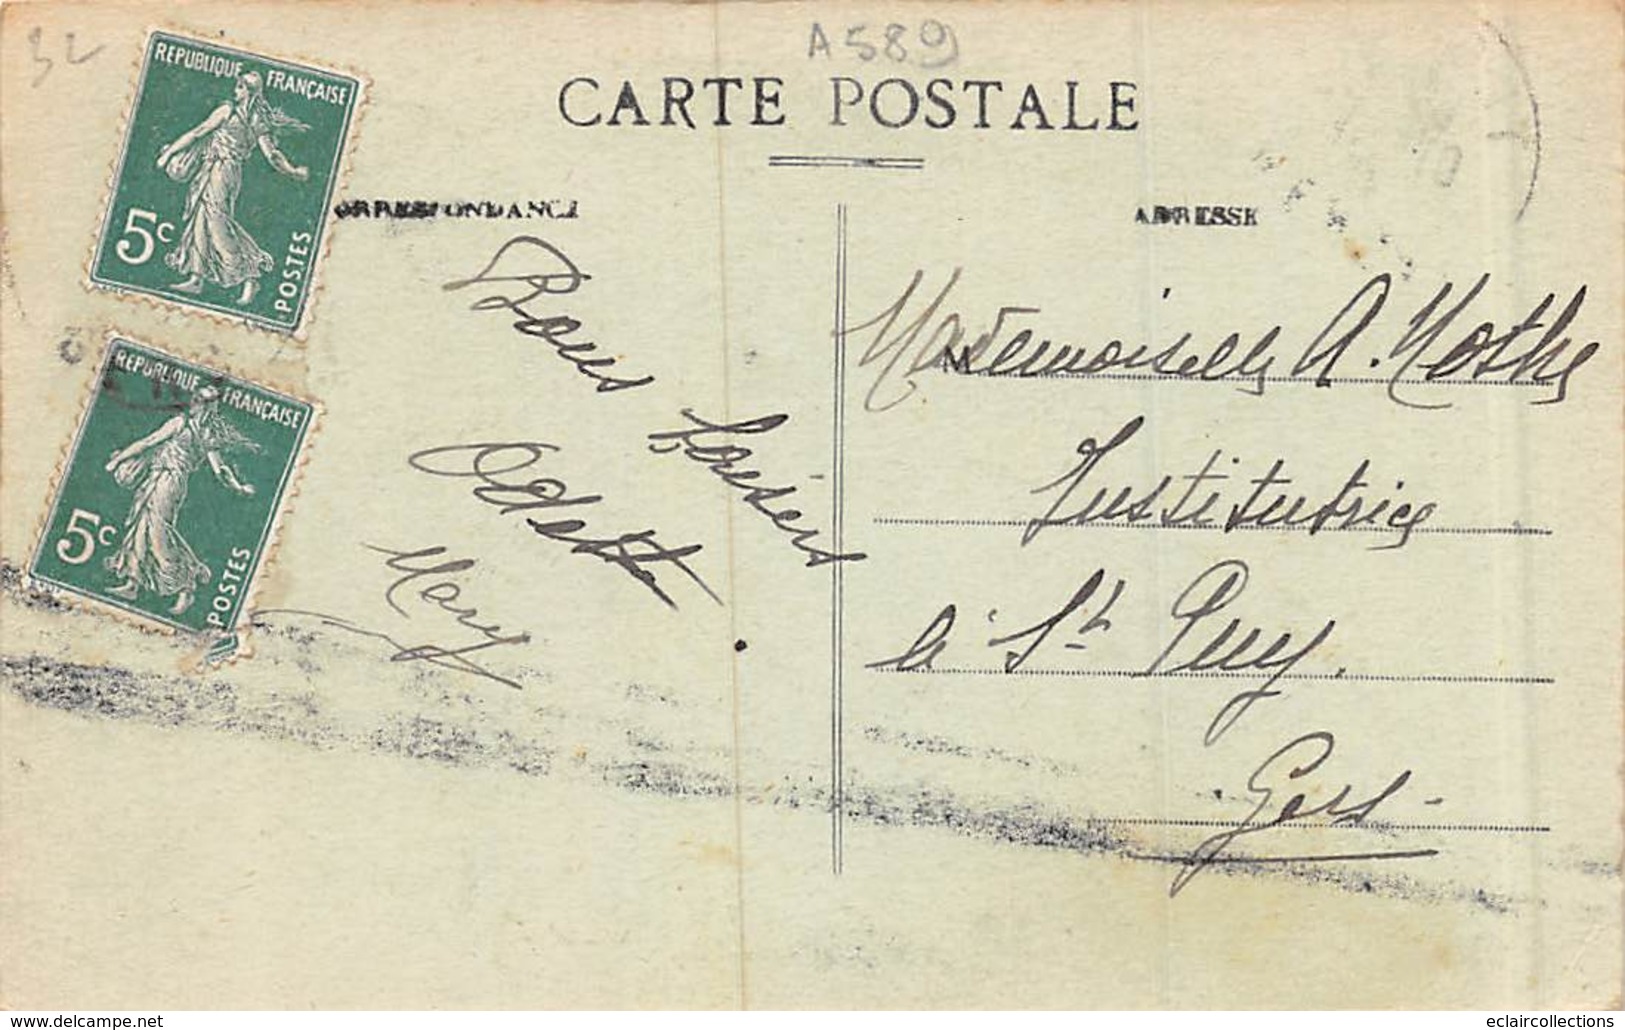 32
A 589
CARTE POSTALE
REPUBLIQUE FRANÇAISE
5c
POSTES
REPUBLIQUE FRANÇAISE
5c
POSTES
ORRESPONDANCE
Bons baisers
Odette
Mary
ADRESSE
Mademoiselle A. Mothe
Institutrice
à St Puy.
Gers
www.eclaircollections.delcampe.net
eclaircollections